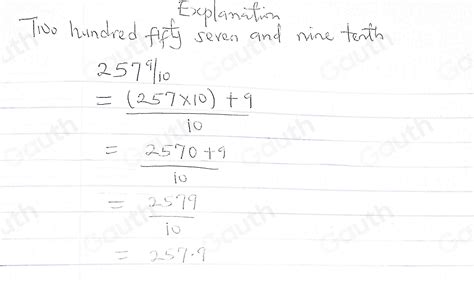 Explanation
Two hundred fifty seven and nine tenth
257 9/10
= (257×10) + 9
10
= 2570+9
10
= 2579
10
= 257.9